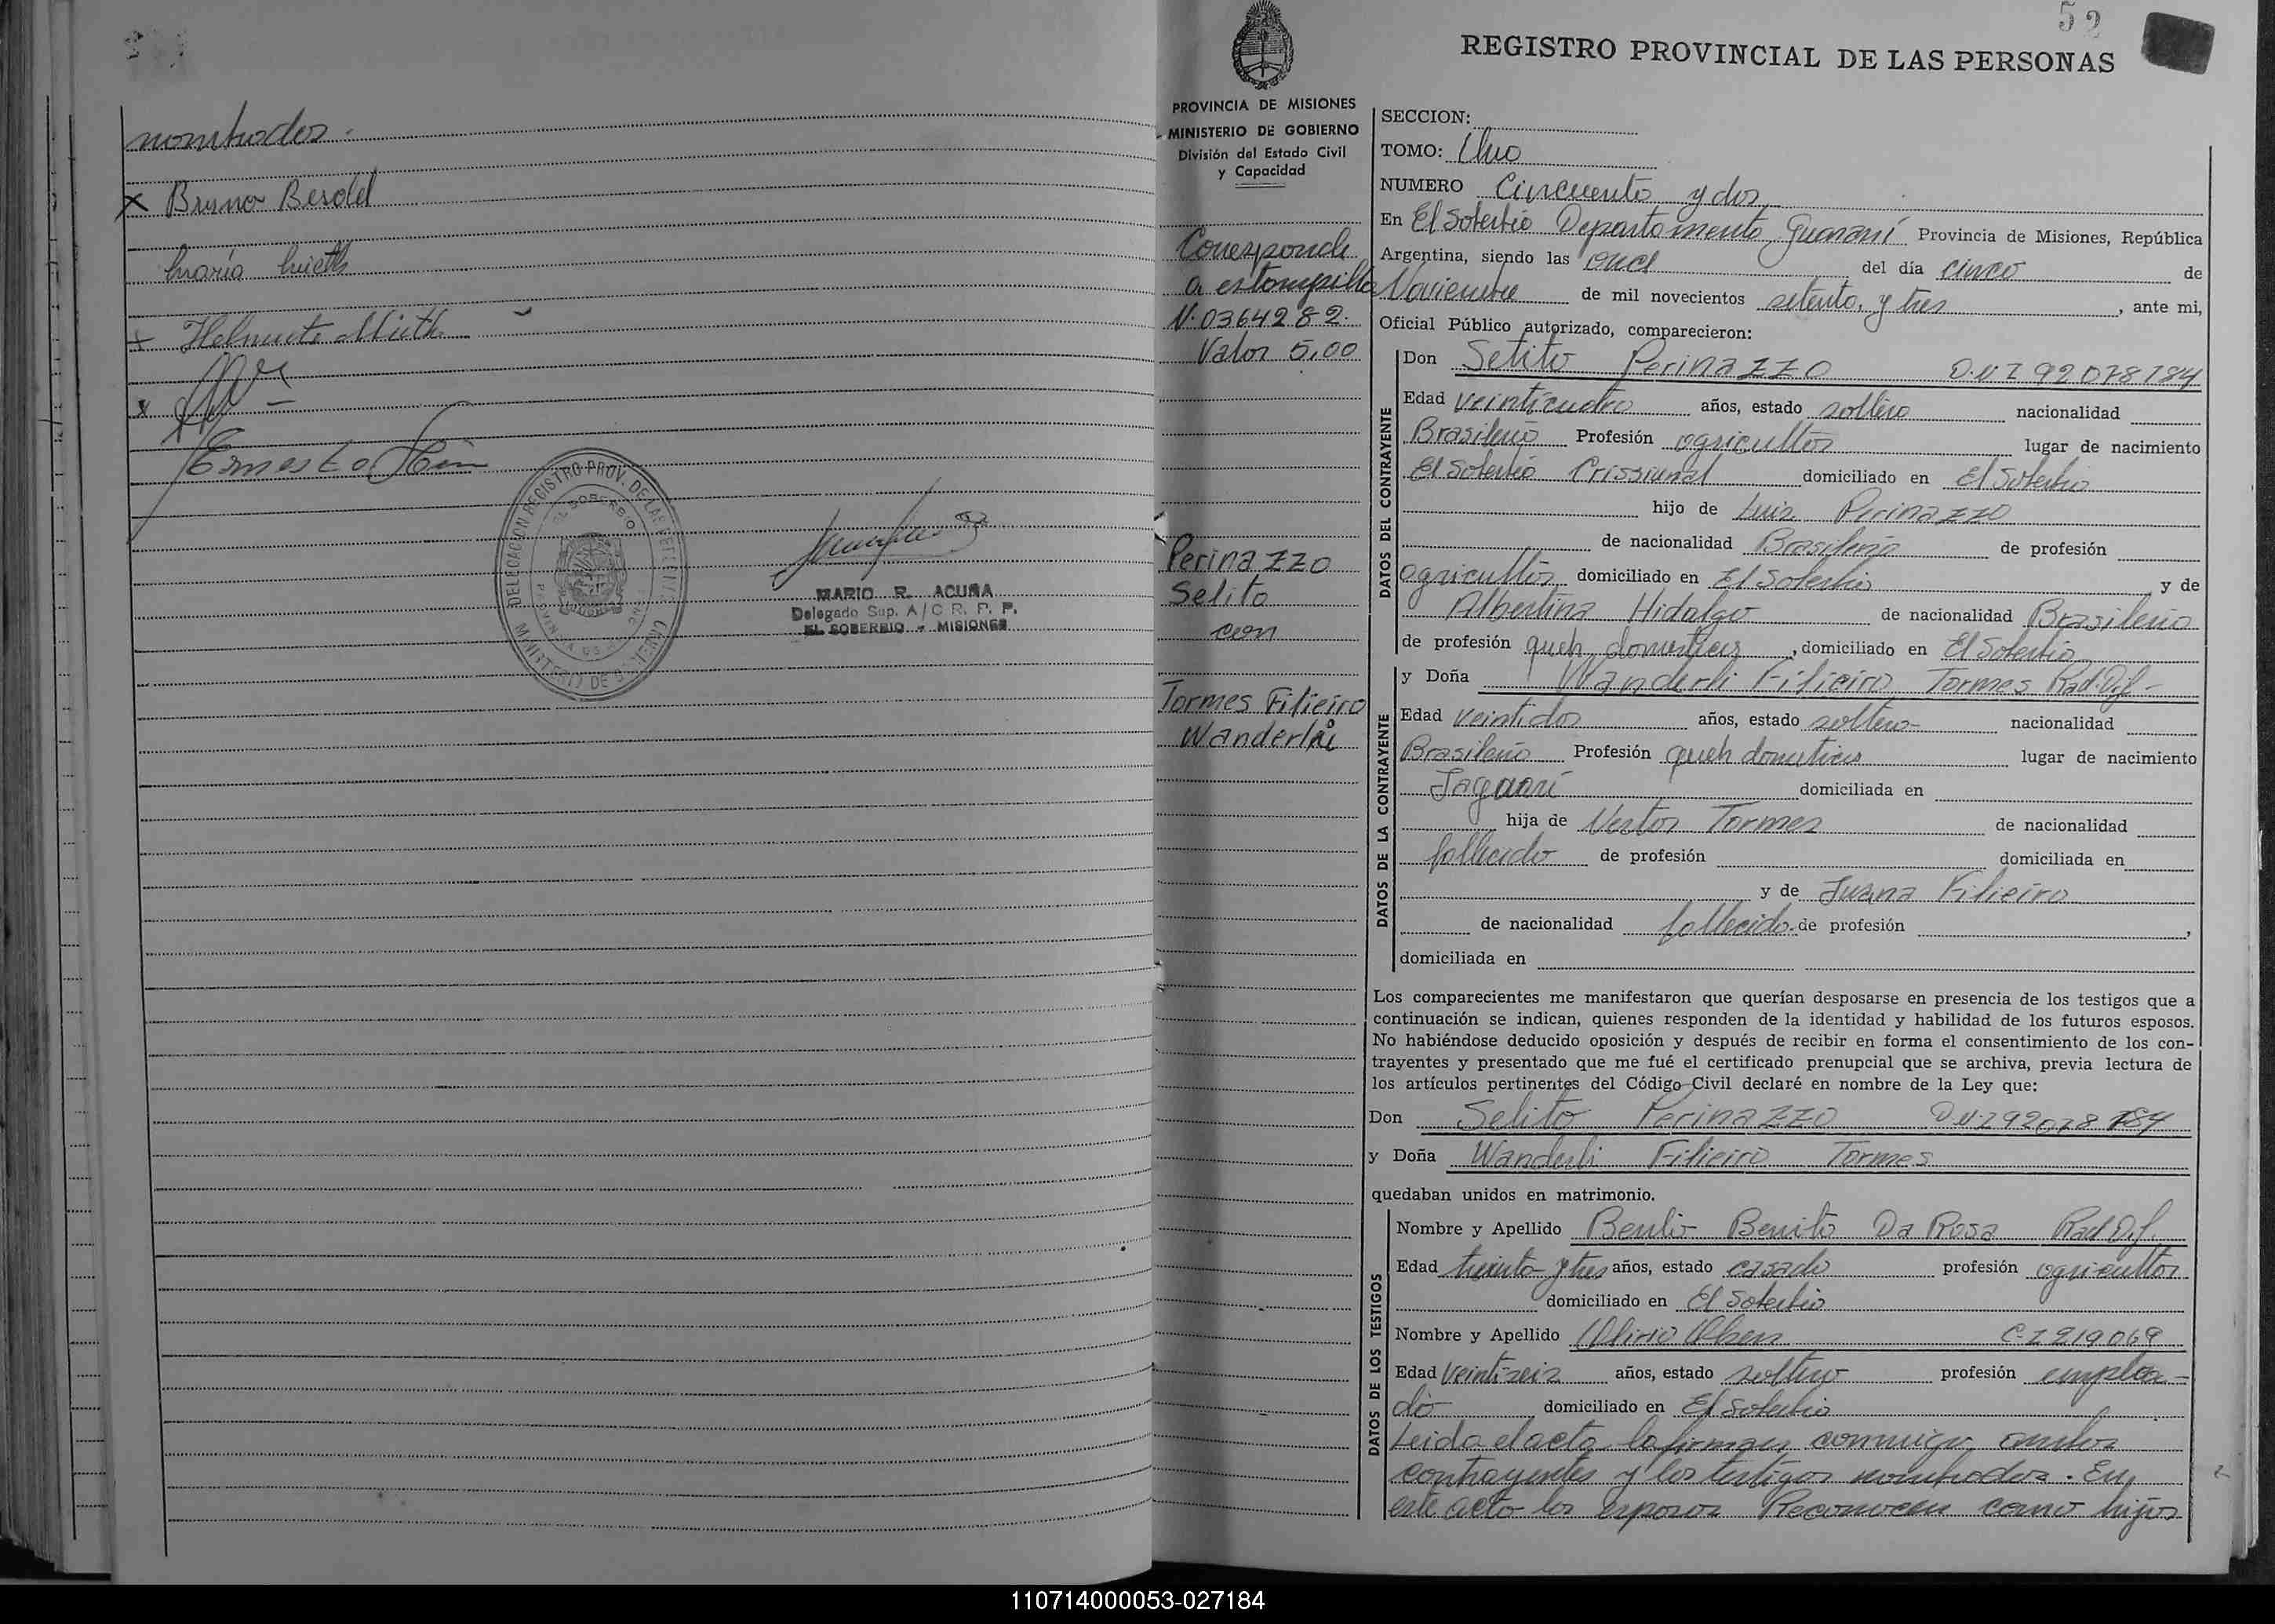 nombrados.
x Bruno Besold
María Mieth
x Helmuto Mieth
x
Ernesto
DELEGACION REGISTRO PROV. DE LAS PERSONAS
EL SOBERBIO
PROVINCIA DE MISIONES
MINISTERIO DE GOBIERNO
MARIO R. ACUÑA
Delegado Sup. A/C R. P. P.
EL SOBERBIO - MISIONES
52
REGISTRO PROVINCIAL DE LAS PERSONAS
PROVINCIA DE MISIONES
MINISTERIO DE GOBIERNO
División del Estado Civil
y Capacidad
Corresponde
a estampilla
N. 0364282.
Valor 5,00
Perinazzo
Selito
con
Tormes Filieiro
Wanderlei
SECCION:
TOMO: Uno
NUMERO Cincuenta y dos
En El Soberbio Departamento Guaraní Provincia de Misiones, República
Argentina, siendo las once del día cinco de
Noviembre de mil novecientos setenta y tres, ante mi,
Oficial Público autorizado, comparecieron:
DATOS DEL CONTRAYENTE
Don Selito Perinazzo D.N.I 92078184
Edad veinticuatro años, estado soltero nacionalidad
Brasileño Profesión agricultor lugar de nacimiento
El Soberbio Crissiumal domiciliado en El Soberbio
hijo de Luis Perinazzo
de nacionalidad Brasileño de profesión
agricultor domiciliado en El Soberbio y de
Albertina Hidalgo de nacionalidad Brasileña
de profesión queh. domesticos, domiciliado en El Soberbio
DATOS DE LA CONTRAYENTE
y Doña Wanderli Filieiro Tormes Rad. Dif-
Edad veintidos años, estado soltera nacionalidad
Brasileña Profesión queh domesticos lugar de nacimiento
Jaguarí domiciliada en
hija de Nestor Tormes de nacionalidad
fallecido de profesión domiciliada en
y de Juana Filieiro
de nacionalidad fallecida de profesión ,
domiciliada en
Los comparecientes me manifestaron que querían desposarse en presencia de los testigos que a
continuación se indican, quienes responden de la identidad y habilidad de los futuros esposos.
No habiéndose deducido oposición y después de recibir en forma el consentimiento de los con-
trayentes y presentado que me fué el certificado prenupcial que se archiva, previa lectura de
los artículos pertinentes del Código Civil declaré en nombre de la Ley que:
Don Selito Perinazzo D.N.I 92078184
y Doña Wanderli Filieiro Tormes
quedaban unidos en matrimonio.
DATOS DE LOS TESTIGOS
Nombre y Apellido Benito Da Rosa Rad Dif.
Edad treinta y tres años, estado casado profesión agricultor
domiciliado en El Soberbio
Nombre y Apellido C.I 219069
Edad veintiseis años, estado soltero profesión emplea-
do domiciliado en El Soberbio
Leida el acta la firman conmigo ambos
contrayentes y los testigos nombrados. En
este acto los esposos Reconocen como hijos
110714000053-027184